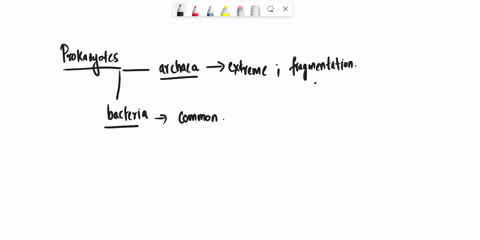 Prokaryotes archaea → extreme ; fragmentation.
bacteria → common.